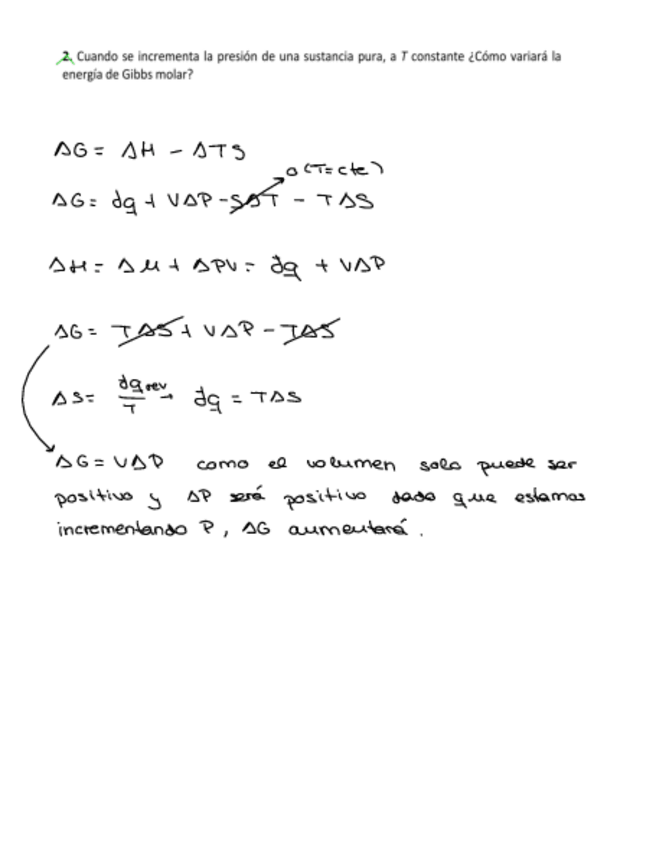 2. Cuando se incrementa la presión de una sustancia pura, a T constante ¿Cómo variará la
energía de Gibbs molar?
ΔG = ΔH - ΔTS
0 (T=cte)
ΔG= dq + VΔP - SΔT - TΔS
ΔH = Δμ + ΔPV = dq + VΔP
ΔG= TΔS + VΔP - TΔS
ΔS= dqrev/T → dq = TΔS
ΔG = VΔP como el volumen solo puede ser
positivo y ΔP será positivo dado que estamos
incrementando P, ΔG aumentará.